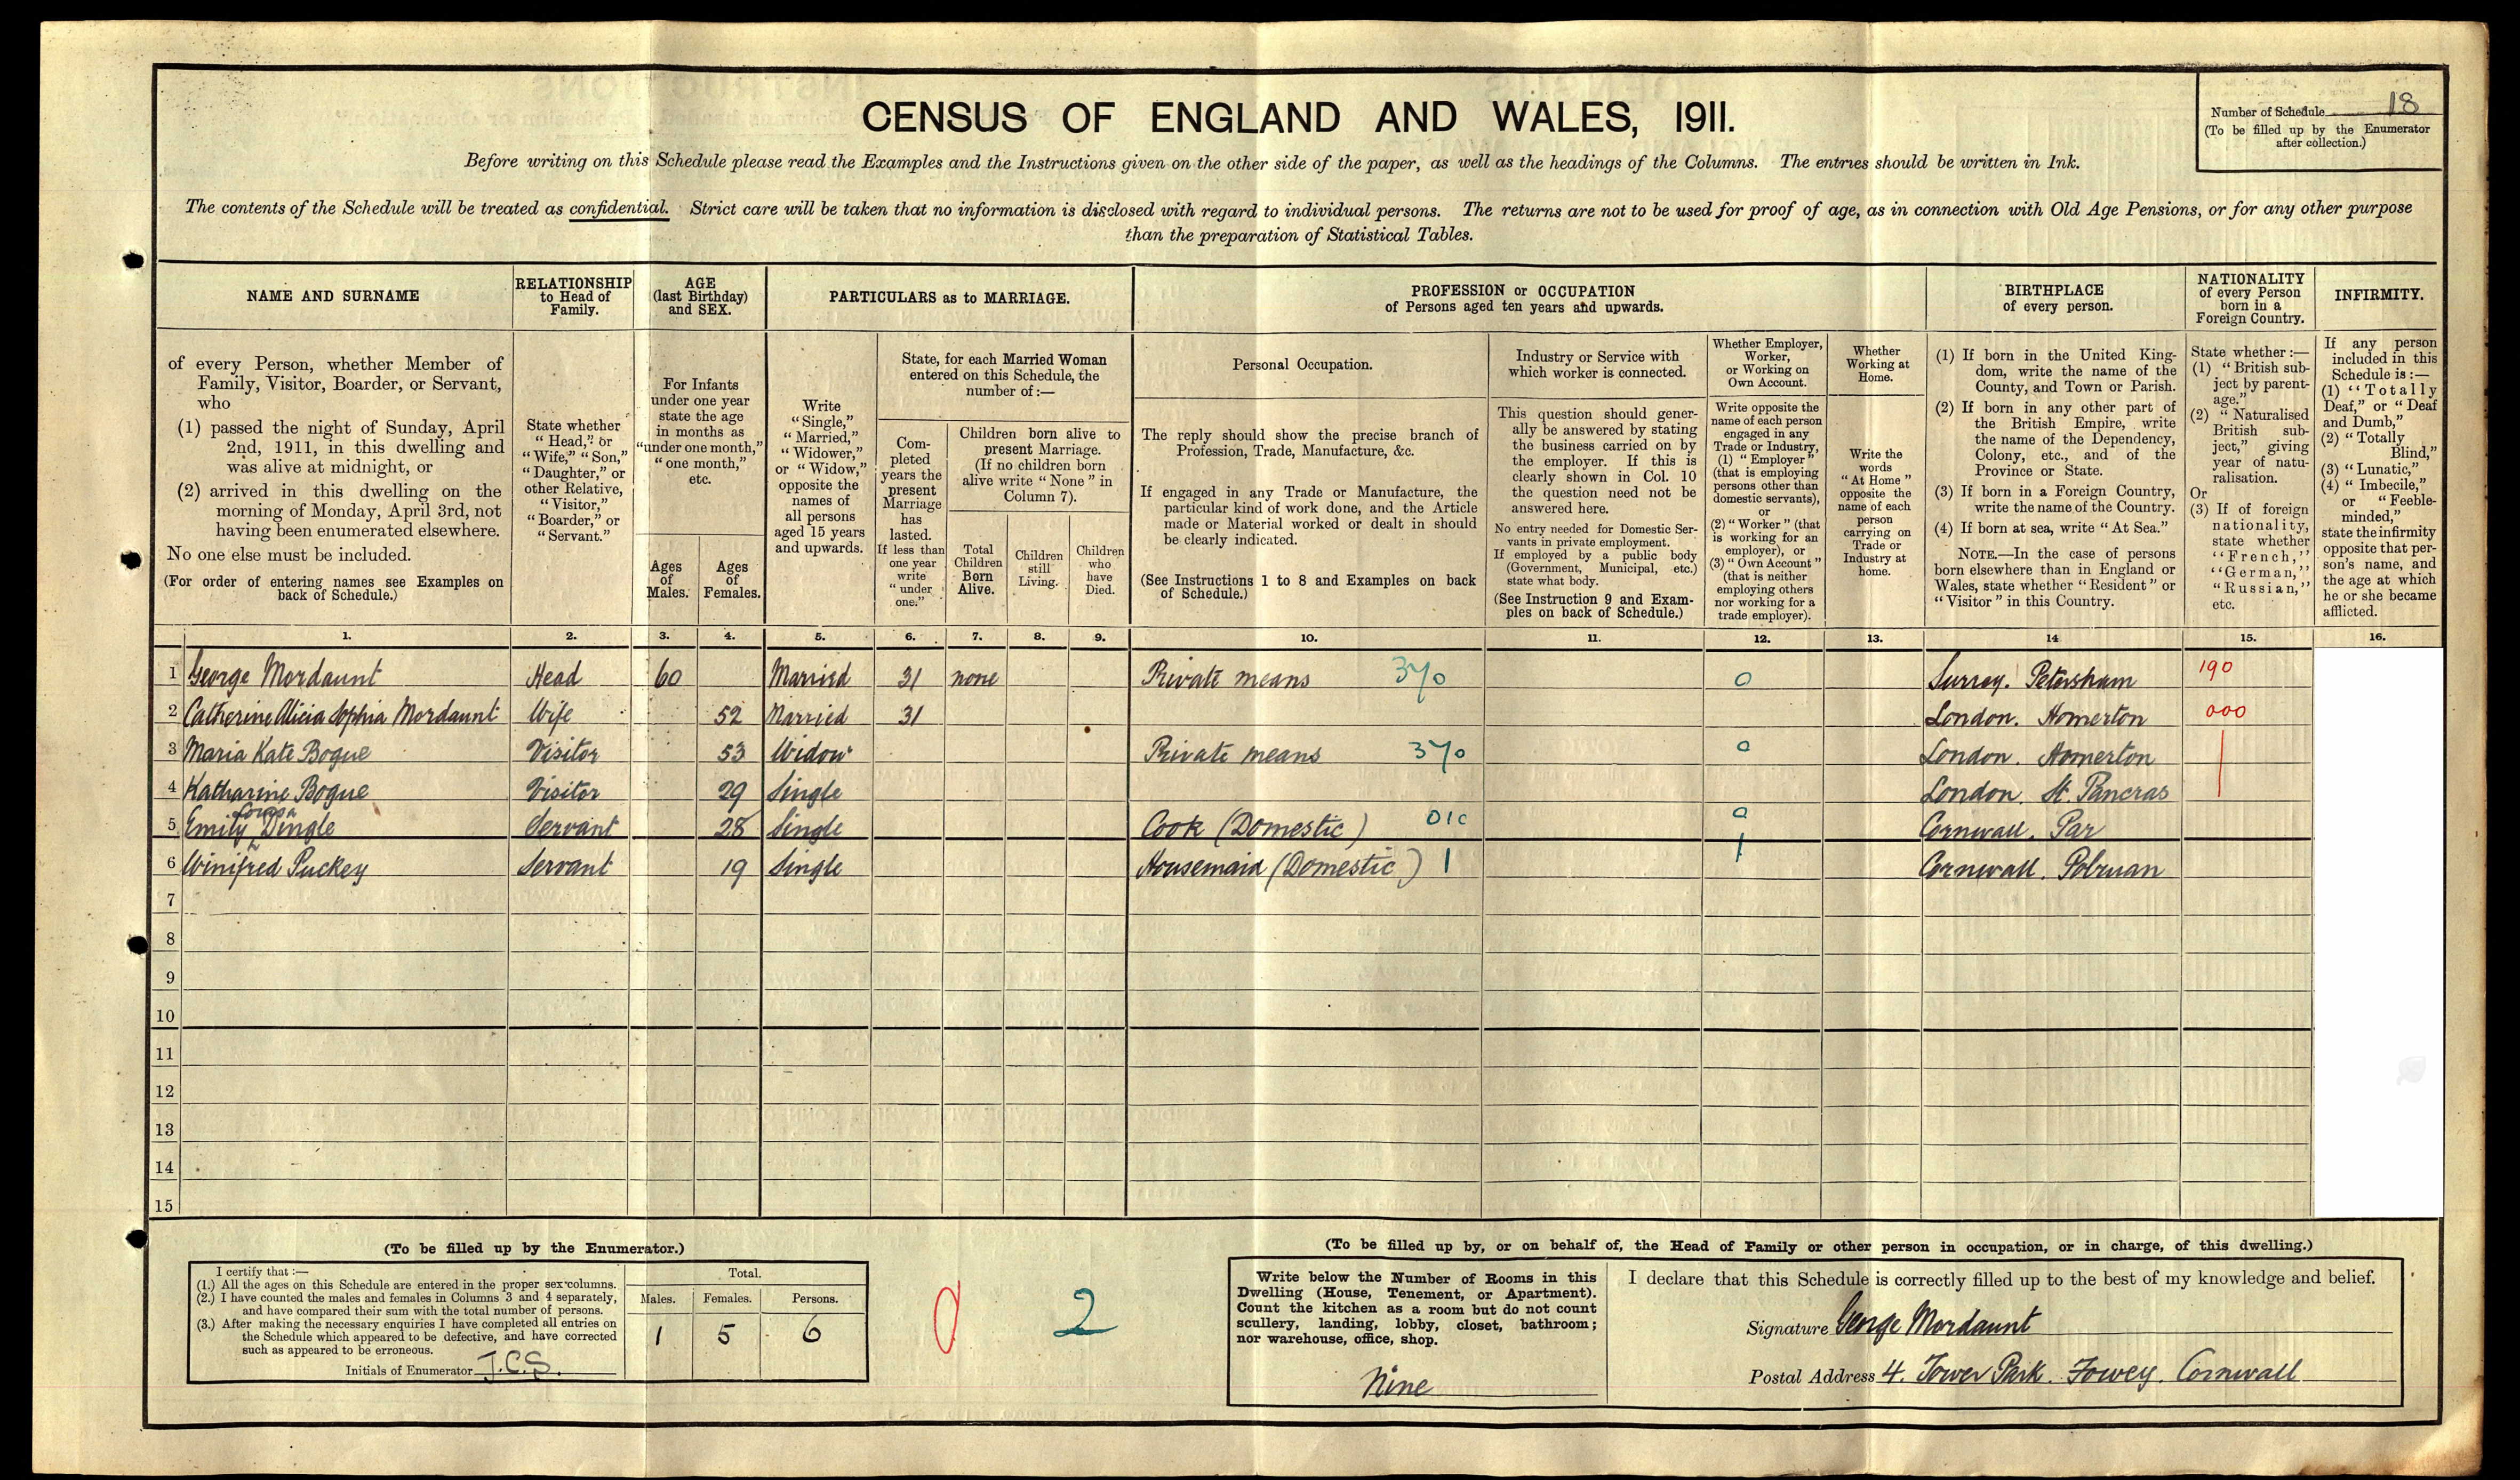 CENSUS OF ENGLAND AND WALES, 1911.
Number of Schedule 18
(To be filled up by the Enumerator
after collection.)
Before writing on this Schedule please read the Examples and the Instructions given on the other side of the paper, as well as the headings of the Columns. The entries should be written in Ink.
The contents of the Schedule will be treated as confidential. Strict care will be taken that no information is disclosed with regard to individual persons. The returns are not to be used for proof of age, as in connection with Old Age Pensions, or for any other purpose
than the preparation of Statistical Tables.
NAME AND SURNAME
of every Person, whether Member of
Family, Visitor, Boarder, or Servant,
who
(1) passed the night of Sunday, April
2nd, 1911, in this dwelling and
was alive at midnight, or
(2) arrived in this dwelling on the
morning of Monday, April 3rd, not
having been enumerated elsewhere.
No one else must be included.
(For order of entering names see Examples on
back of Schedule.)
RELATIONSHIP
to Head of
Family.
State whether
"Head," or
"Wife," "Son,"
"Daughter," or
other Relative,
"Visitor,"
"Boarder," or
"Servant."
AGE
(last Birthday)
and SEX.
For Infants
under one year
state the age
in months as
"under one month,"
"one month,"
etc.
Ages
of
Males.
Ages
of
Females.
PARTICULARS as to MARRIAGE.
Write
"Single,"
"Married,"
"Widower,"
or "Widow,"
opposite the
names of
all persons
aged 15 years
and upwards.
State, for each Married Woman
entered on this Schedule, the
number of:—
Com-
pleted
years the
present
Marriage
has
lasted.
If less than
one year
write
"under
one."
Children born alive to
present Marriage.
(If no children born
alive write "None" in
Column 7).
Total
Children
Born
Alive.
Children
still
Living.
Children
who
have
Died.
PROFESSION or OCCUPATION
of Persons aged ten years and upwards.
Personal Occupation.
The reply should show the precise branch of
Profession, Trade, Manufacture, &c.
If engaged in any Trade or Manufacture, the
particular kind of work done, and the Article
made or Material worked or dealt in should
be clearly indicated.
(See Instructions 1 to 8 and Examples on back
of Schedule.)
Industry or Service with
which worker is connected.
This question should gener-
ally be answered by stating
the business carried on by
the employer. If this is
clearly shown in Col. 10
the question need not be
answered here.
No entry needed for Domestic Ser-
vants in private employment.
If employed by a public body
(Government, Municipal, etc.)
state what body.
(See Instruction 9 and Exam-
ples on back of Schedule.)
Whether Employer,
Worker,
or Working on
Own Account.
Write opposite the
name of each person
engaged in any
Trade or Industry,
(1) "Employer"
(that is employing
persons other than
domestic servants),
or
(2) "Worker" (that
is working for an
employer), or
(3) "Own Account"
(that is neither
employing others
nor working for a
trade employer).
Whether
Working at
Home.
Write the
words
"At Home"
opposite the
name of each
person
carrying on
Trade or
Industry at
home.
BIRTHPLACE
of every person.
(1) If born in the United King-
dom, write the name of the
County, and Town or Parish.
(2) If born in any other part of
the British Empire, write
the name of the Dependency,
Colony, etc., and of the
Province or State.
(3) If born in a Foreign Country,
write the name of the Country.
(4) If born at sea, write "At Sea."
NOTE.—In the case of persons
born elsewhere than in England or
Wales, state whether "Resident" or
"Visitor" in this Country.
NATIONALITY
of every Person
born in a
Foreign Country.
State whether:—
(1) "British sub-
ject by parent-
age."
(2) "Naturalised
British sub-
ject," giving
year of natu-
ralisation.
Or
(3) If of foreign
nationality,
state whether
"French,"
"German,"
"Russian,"
etc.
INFIRMITY.
If any person
included in this
Schedule is:—
(1) "Totally
Deaf," or "Deaf
and Dumb,"
(2) "Totally
Blind,"
(3) "Lunatic,"
(4) "Imbecile,"
or "Feeble-
minded,"
state the infirmity
opposite that per-
son's name, and
the age at which
he or she became
afflicted.
1. 2. 3. 4. 5. 6. 7. 8. 9. 10. 11. 12. 13. 14 15. 16.
1 George Mordaunt Head 60 Married 31 none Private means 370 0 Surrey. Petersham 190
2 Catherine Alicia Sophia Mordaunt Wife 52 Married 31 London. Homerton 000
3 Maria Kate Bogue Visitor 53 Widow Private means 370 0 London. Homerton
4 Katharine Bogue Visitor 29 Single London. St. Pancras
5 Emily Louisa Dingle Servant 28 Single Cook (Domestic) 010 0 Cornwall. Par
6 Winifred Puckey Servant 19 Single Housemaid (Domestic) 1 1 Cornwall. Polruan
7
8
9
10
11
12
13
14
15
(To be filled up by the Enumerator.)
I certify that:—
(1.) All the ages on this Schedule are entered in the proper sex columns.
(2.) I have counted the males and females in Columns 3 and 4 separately,
and have compared their sum with the total number of persons.
(3.) After making the necessary enquiries I have completed all entries on
the Schedule which appeared to be defective, and have corrected
such as appeared to be erroneous.
Initials of Enumerator J.C.S.
Total.
Males. Females. Persons.
1 5 6
2
(To be filled up by, or on behalf of, the Head of Family or other person in occupation, or in charge, of this dwelling.)
Write below the Number of Rooms in this
Dwelling (House, Tenement, or Apartment).
Count the kitchen as a room but do not count
scullery, landing, lobby, closet, bathroom;
nor warehouse, office, shop.
Nine
I declare that this Schedule is correctly filled up to the best of my knowledge and belief.
Signature George Mordaunt
Postal Address 4. Tower Park. Fowey. Cornwall